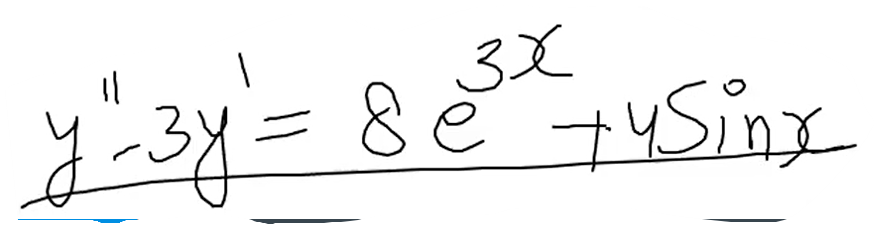 y'' - 3y' = 8e^{3x} + 4Sinx